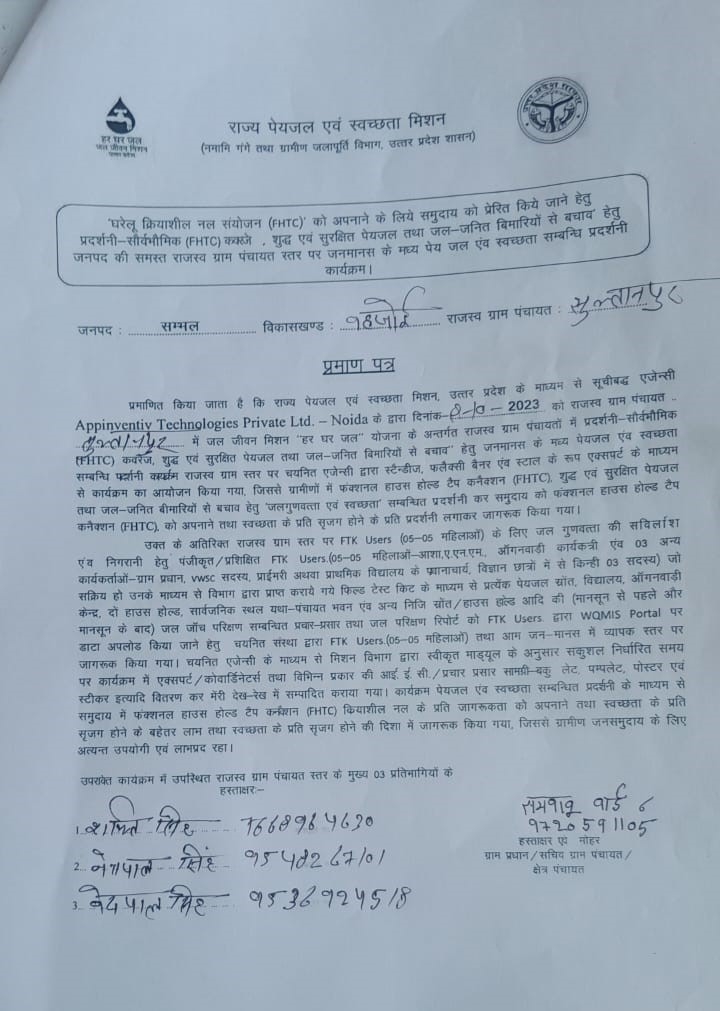 हर घर जल
जल जीवन मिशन
उत्तर प्रदेश सरकार
राज्य पेयजल एवं स्वच्छता मिशन
(नमामि गंगे तथा ग्रामीण जलापूर्ति विभाग, उत्तर प्रदेश शासन)
'घरेलू क्रियाशील नल संयोजन (FHTC)' को अपनाने के लिये समुदाय को प्रेरित किये जाने हेतु
प्रदर्शनी–सौर्वभौमिक (FHTC) कवरेज , शुद्ध एवं सुरक्षित पेयजल तथा जल–जनित बिमारियों से बचाव' हेतु
जनपद की समस्त राजस्व ग्राम पंचायत स्तर पर जनमानस के मध्य पेय जल एंव स्वच्छता सम्बन्धि प्रदर्शनी
कार्यक्रम।
जनपद : सम्भल विकासखण्ड : बहजोई राजस्व ग्राम पंचायत : सुल्तानपुर
प्रमाण पत्र
प्रमाणित किया जाता है कि राज्य पेयजल एवं स्वच्छता मिशन, उत्तर प्रदेश के माध्यम से सूचीबद्ध एजेन्सी
Appinventiv Technologies Private Ltd. – Noida के द्वारा दिनांक – 2023 को राजस्व ग्राम पंचायत ..
सुल्तानपुर में जल जीवन मिशन "हर घर जल" योजना के अन्तर्गत राजस्व ग्राम पंचायतों में प्रदर्शनी–सौर्वभौमिक
(FHTC) कवरेज, शुद्ध एवं सुरक्षित पेयजल तथा जल–जनित बिमारियों से बचाव" हेतु जनमानस के मध्य पेयजल एंव स्वच्छता
सम्बन्धि प्रदर्शनी कार्यक्रम राजस्व ग्राम स्तर पर चयनित एजेन्सी द्वारा स्टैन्डीज, फलैक्सी बैनर एंव स्टाल के रूप एक्सपर्ट के माध्यम
से कार्यक्रम का आयोजन किया गया, जिससे ग्रामीणों में फंक्शनल हाउस होल्ड टैप कनैक्शन (FHTC), शुद्ध एवं सुरक्षित पेयजल
तथा जल–जनित बीमारियों से बचाव हेतु 'जलगुणवत्ता एवं स्वच्छता' सम्बन्धित प्रदर्शनी कर समुदाय को फंक्शनल हाउस होल्ड टैप
कनैक्शन (FHTC), को अपनाने तथा स्वच्छता के प्रति सृजग होने के प्रति प्रदर्शनी लगाकर जागरूक किया गया।
उक्त के अतिरिक्त राजस्व ग्राम स्तर पर FTK Users (05–05 महिलाओं) के लिए जल गुणवत्ता की सविलांश
एंव निगरानी हेतु पंजीकृत/प्रशिक्षित FTK Users.(05–05 महिलाओं–आशा,ए.एन.एम., ऑगनवाड़ी कार्यकत्री एंव 03 अन्य
कार्यकर्ताओं–ग्राम प्रधान, vwsc सदस्य, प्राईमरी अथवा प्राथमिक विद्यालय के प्रधानाचार्य, विज्ञान छात्रों में से किन्ही 03 सदस्य) जो
सक्रिय हो उनके माध्यम से विभाग द्वारा प्राप्त कराये गये फिल्ड टेस्ट किट के माध्यम से प्रत्येक पेयजल स्रोंत, विद्यालय, ऑगनवाड़ी
केन्द्र, दों हाउस होल्ड, सार्वजनिक स्थल यथा–पंचायत भवन एंव अन्य निजि स्रोंत/हाउस हाल्ड आदि की (मानसून से पहले और
मानसून के बाद) जल जॉच परिक्षण सम्बन्धित प्रचार–प्रसार तथा जल परिक्षण रिपोर्ट को FTK Users. द्वारा WQMIS Portal पर
डाटा अपलोड किया जाने हेतु चयनित संस्था द्वारा FTK Users.(05–05 महिलाओं) तथा आम जन–मानस में व्यापक स्तर पर
जागरूक किया गया। चयनित एजेन्सी के माध्यम से मिशन विभाग द्वारा स्वीकृत माड्यूल के अनुसार सकुशल निर्धारित समय
पर कार्यक्रम में एक्सपर्ट/कोवार्डिनेटर्स तथा विभिन्न प्रकार की आई. ई. सी./प्रचार प्रसार सामग्री–बकु लेट, पम्पलेट, पोस्टर एवं
स्टीकर इत्यादि वितरण कर मेरी देख–रेख में सम्पादित कराया गया। कार्यक्रम पेयजल एंव स्वच्छता सम्बन्धित प्रदर्शनी के माध्यम से
समुदाय में फंक्शनल हाउस होल्ड टैप कनैक्शन (FHTC) क्रियाशील नल के प्रति जागरूकता को अपनाने तथा स्वच्छता के प्रति
सृजग होने के बेहतर लाभ तथा स्वच्छता के प्रति सृजग होने की दिशा में जागरूक किया गया, जिससे ग्रामीण जनसमुदाय के लिए
अत्यन्त उपयोगी एवं लाभप्रद रहा।
उपरोक्त कार्यक्रम में उपस्थित राजस्व ग्राम पंचायत स्तर के मुख्य 03 प्रतिभागियों के
हस्ताक्षरः–
1. सिंह 7668964630
2. नेत्रपाल सिंह 9548267101
3. वेदपाल सिंह 9536924518
वार्ड 6
9720591105
हस्ताक्षर एवं मोहर
ग्राम प्रधान/सचिव ग्राम पंचायत/
क्षेत्र पंचायत